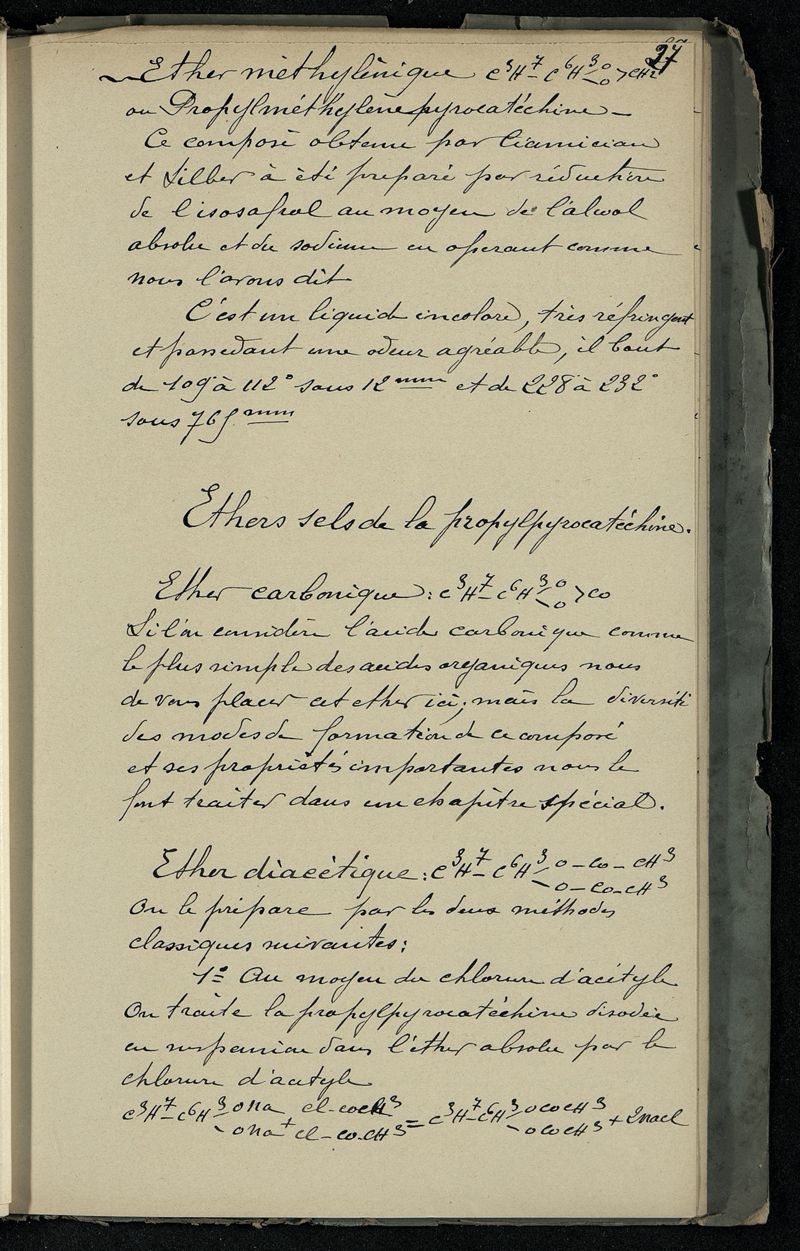 27
Ether méthylénique C³H⁷-C⁶H³<O-O>CH²
ou Propylméthylène pyrocatéchine —
Ce composé obtenu par Ciamician
et Silber à été préparé par réduction
de l'isosafrol au moyen de l'alcool
absolu et du sodium en opérant comme
nous l'avons dit
C'est un liquide incolore, très réfringent
et possedant une odeur agréable, il bout
de 109 à 112° sous 12 mm et de 228 à 232°
sous 765 mm
Ethers sels de la propylpyrocatéchine.
Ether carbonique : C³H⁷-C⁶H³<O-O>CO
Si l'on considère l'acide carbonique comme
le plus simple des acides organiques nous
devons placer cet ether ici; mais la diversité
des modes de formation de ce composé
et ses propriétés importantes nous le
font traiter dans un chapitre spécial.
Ether diacétique : C³H⁷-C⁶H³ O-CO-CH³
O-CO-CH³
On le prépare par les deux méthodes
classiques suivantes :
1° Au moyen du chlorure d'acétyle
On traite la propylpyrocatéchine disodée
en suspension dans l'éther absolu par le
chlorure d'acétyle
C³H⁷-C⁶H³ ONa + Cl-COCH³ = C³H⁷C⁶H³ OCOCH³ + 2NaCl
ONa Cl-CO-CH³ OCOCH³